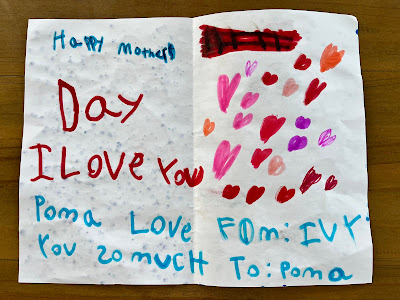 Happy mothers
Day
I Love You
Poma Love
You so mucH
FOm: IVY
To: Poma